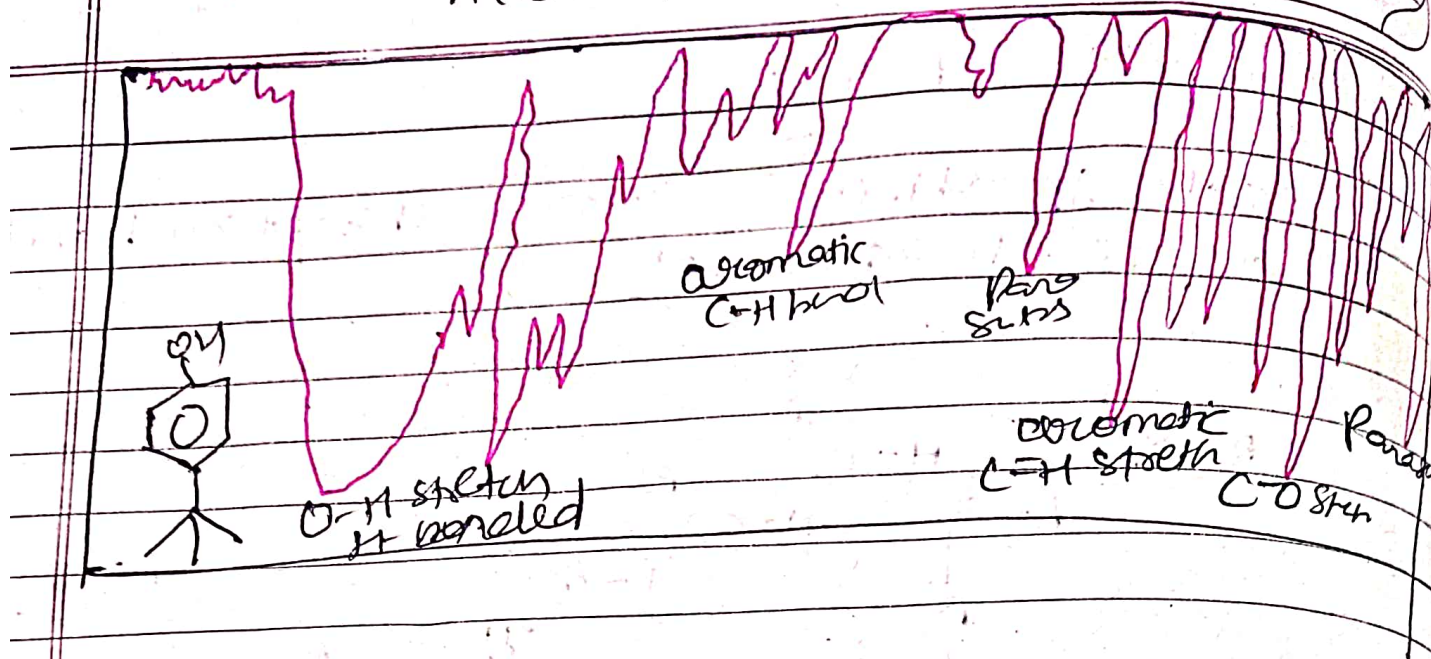 OH
O-H stretch
H bonded
aromatic
C-H bend
Para
Subs
aromatic
C=H streth
C-O Strh
Para